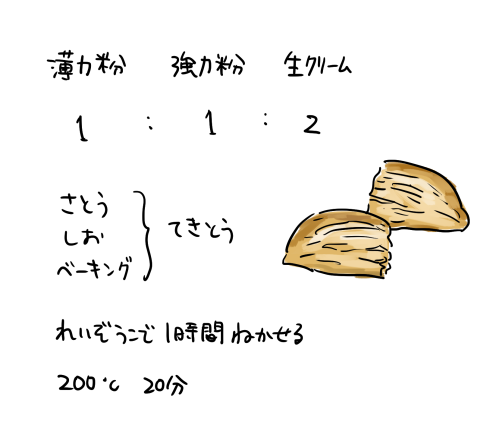 薄力粉 強力粉 生クリーム
1 : 1 : 2
さとう
しお
ベーキング
てきとう
れいぞうこで1時間ねかせる
200℃ 20分